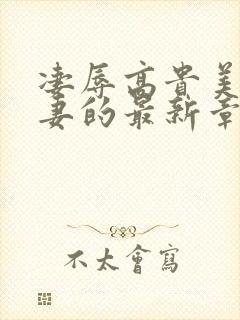 凄辱高貴美
妻的最新章
不太會寫